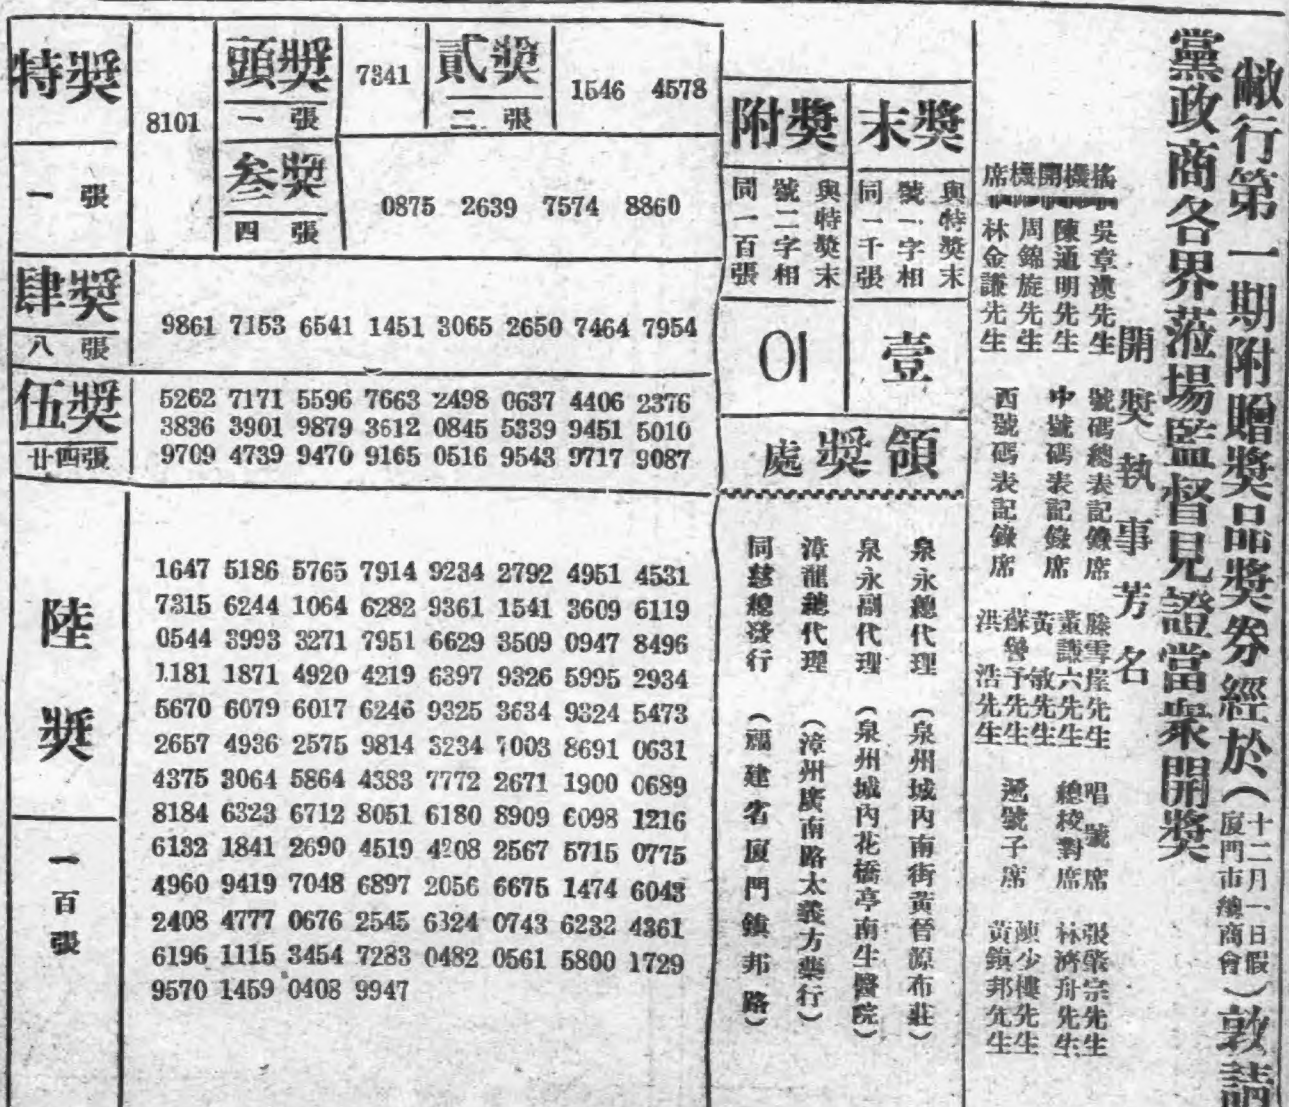 敝行第一期附贈獎品獎券經於(十二月一日假廈門市總商會)敦請
黨政商各界蒞場監督見證當衆開獎
開獎執事芳名
搖機席 吳章漢先生 陳通明先生
開機席 周錦旋先生 林金謙先生
號碼總表記錄席 滕雪崖先生 董謙六先生
中號碼表記錄席 黃敏先生
西號碼表記錄席 蘇警予先生 洪浩先生
唱號席 張肇宗先生
總校對席 林濟舟先生
遞號子席 陳少樓先生 黃鎮邦先生
末獎
與特獎末號一字相同一千張
壹
附獎
與特獎末號二字相同一百張
01
領獎處
泉永總代理 (泉州城內南街黃晉源布莊)
泉永副代理 (泉州城內花橋亭南生醫院)
漳龍總代理 (漳州廣南路太義方藥行)
同慈總發行 (福建省廈門鎮邦路)
特獎
一張
8101
頭獎
一張
7341
貳獎
二張
1546 4578
叁獎
四張
0875 2639 7574 8860
肆獎
八張
9861 7153 6541 1451 3065 2650 7464 7954
伍獎
廿四張
5262 7171 5596 7663 2498 0637 4406 2376
3836 3901 9879 3612 0845 5339 9451 5010
9709 4739 9470 9165 0516 9543 9717 9087
陸獎
一百張
1647 5186 5765 7914 9234 2792 4951 4531
7315 6244 1064 6282 9361 1541 3609 6119
0544 3993 3271 7951 6629 3509 0947 8496
1181 1871 4920 4219 6397 9326 5995 2934
5670 6079 6017 6246 9325 3634 9324 5473
2657 4936 2575 9814 3234 7003 8691 0631
4375 3064 5864 4383 7772 2671 1900 0689
8184 6323 6712 8051 6180 8909 6098 1216
6132 1841 2690 4519 4208 2567 5715 0775
4960 9419 7048 6897 2056 6675 1474 6043
2408 4777 0676 2545 6324 0743 6232 4361
6196 1115 3454 7283 0482 0561 5800 1729
9570 1459 0408 9947